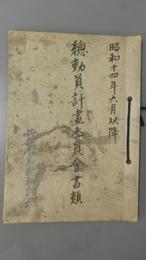 昭和十四年六月以降
總動員計畫委員會書類